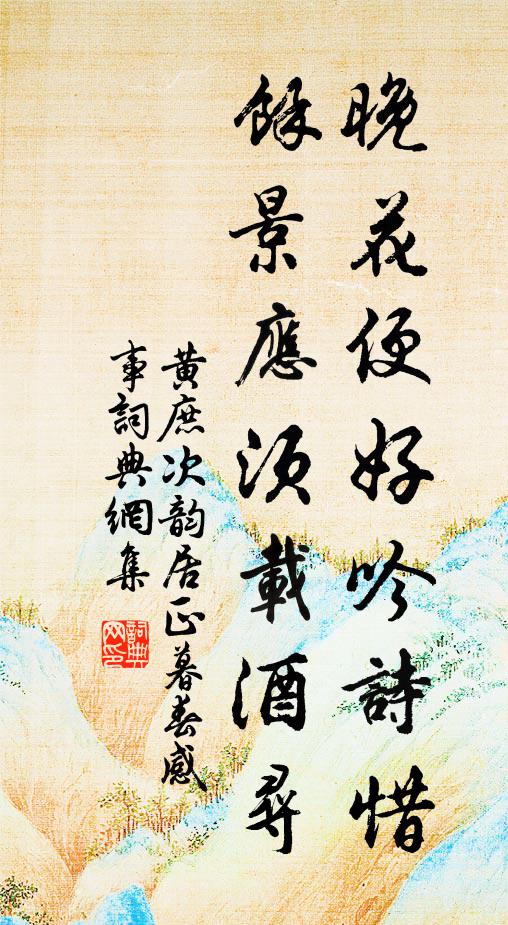 晚花便好吟詩惜
餘景應須載酒尋
黃庶次韵居正暮春感
事詞典網集
詞典网印